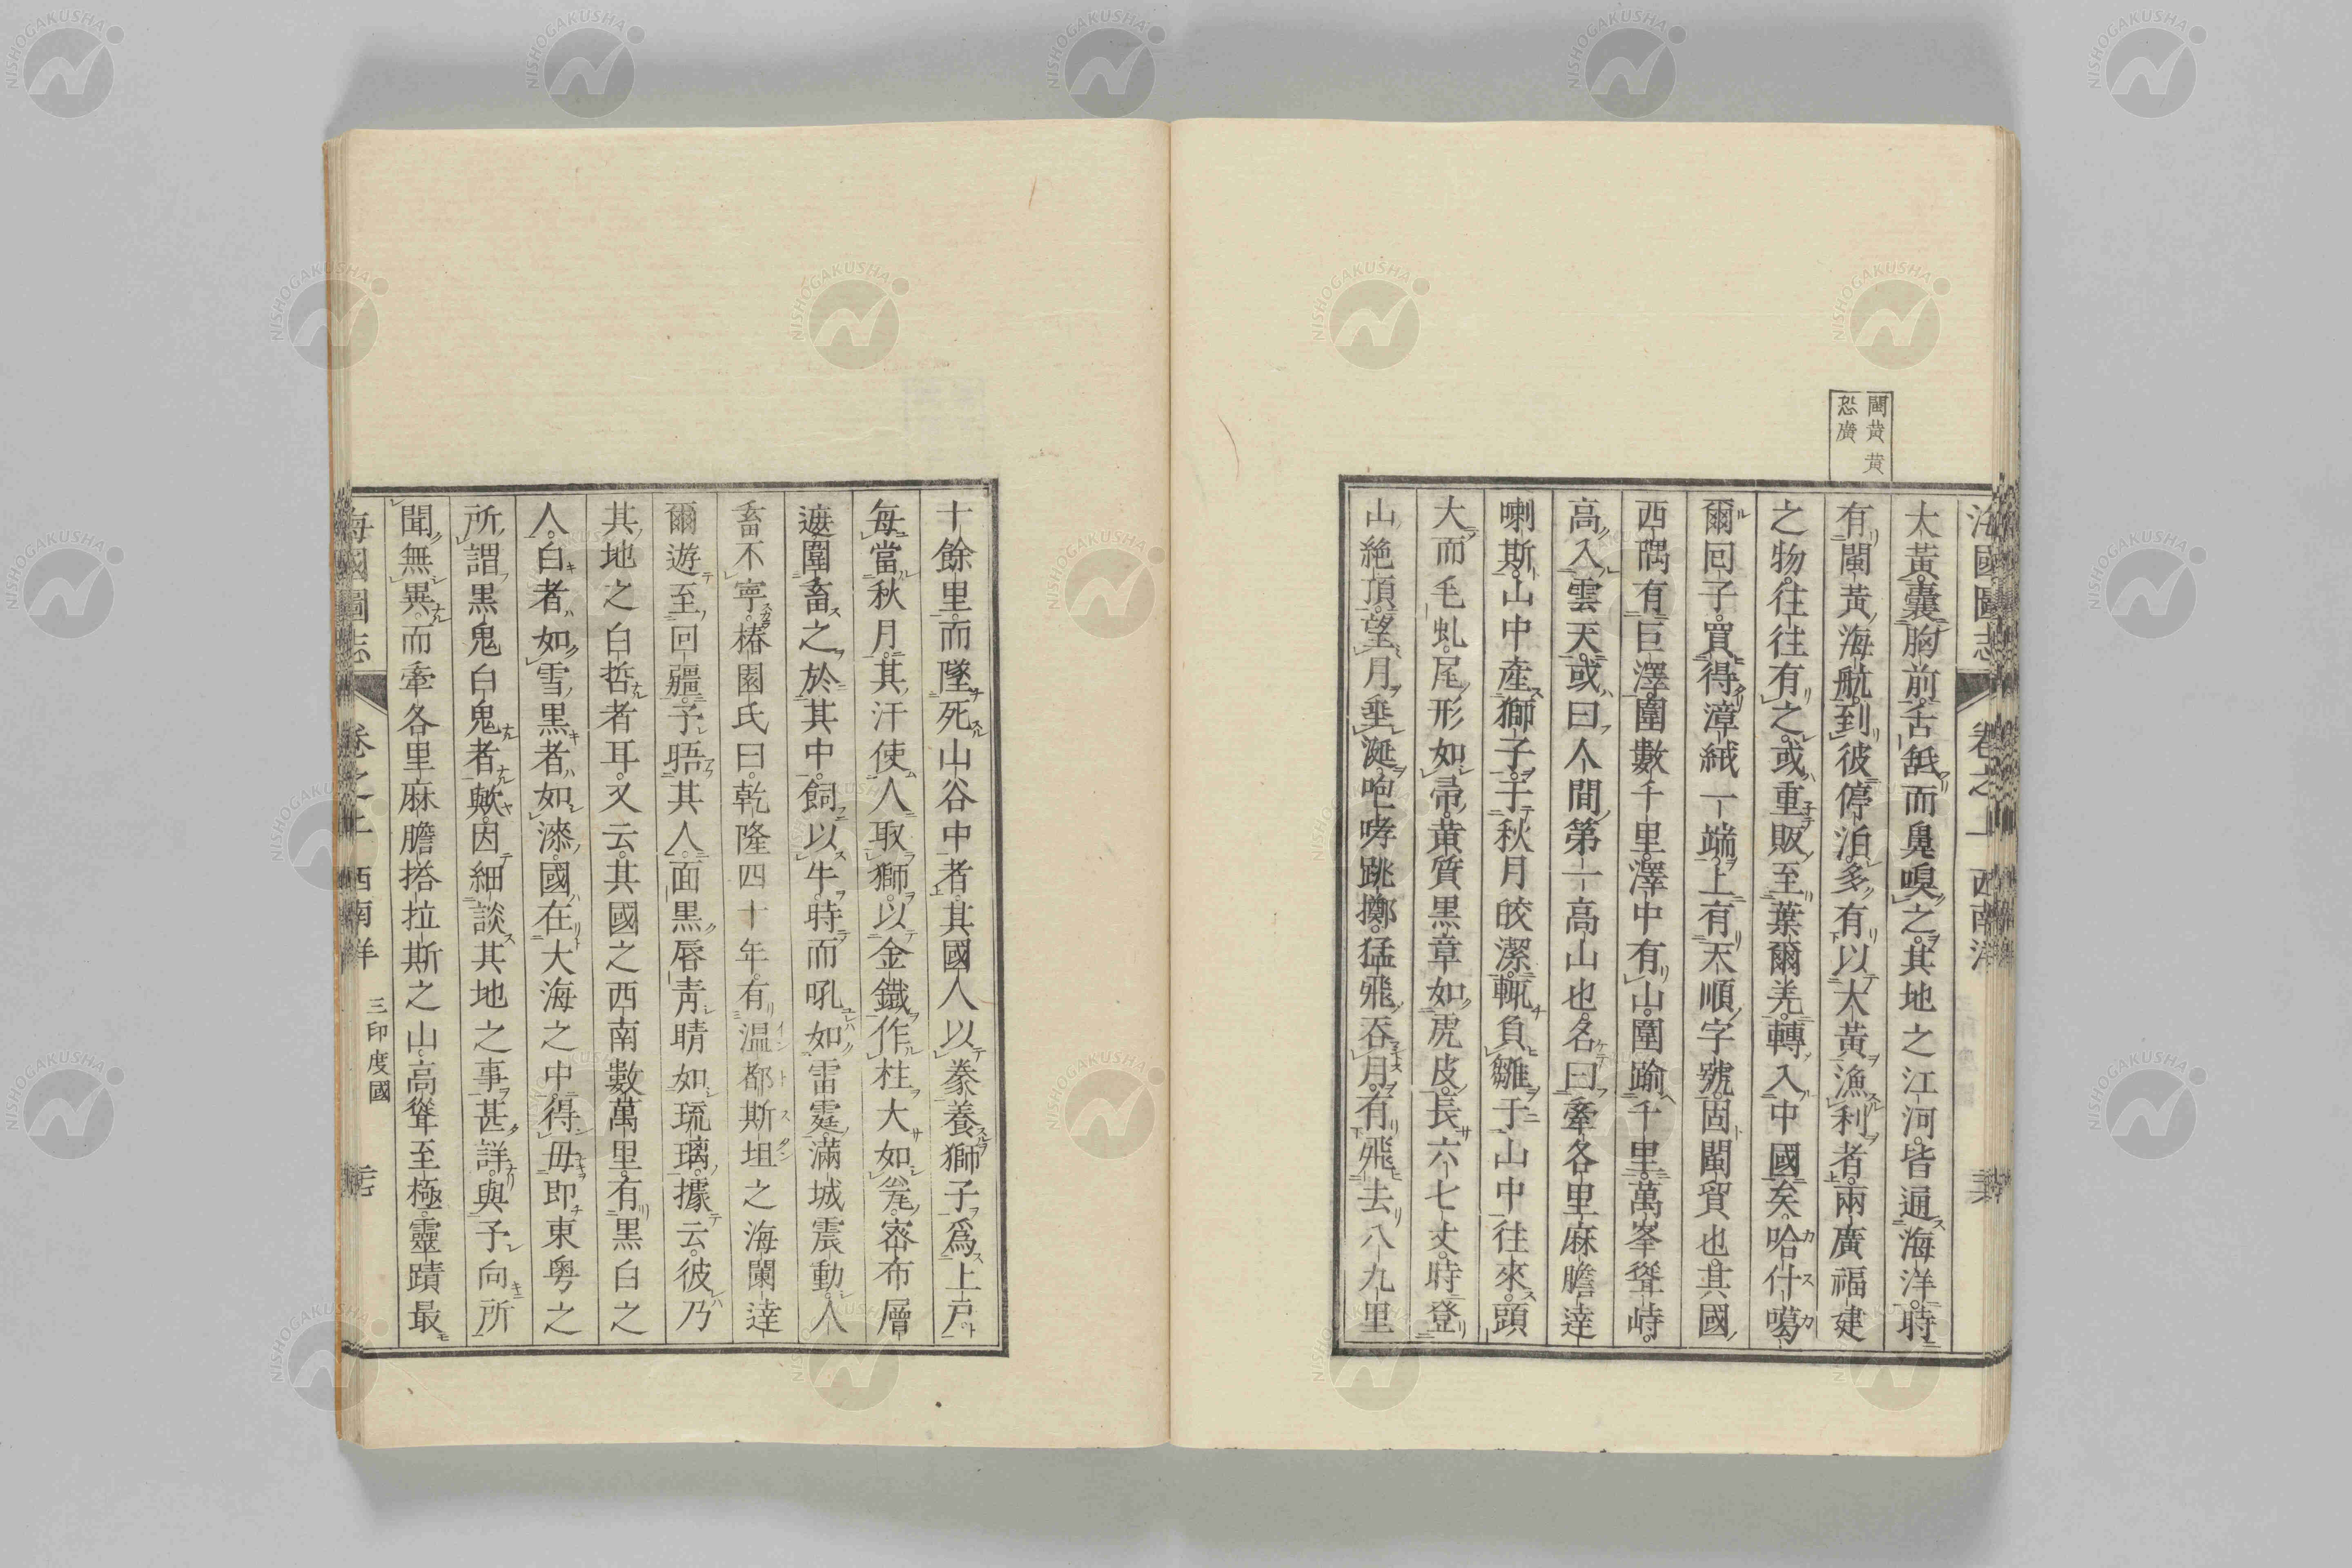 閩黄黄
恐廣
海國圖志 卷之一 西南洋
大黃囊胸前。舌舐而鼻嗅之。其地之江河。皆通海洋。時
有閩黃海航。到彼停泊。多有以大黃漁利者。兩廣福建
之物。往往有之。或重販至葉爾羌。轉入中國矣。哈什噶
爾回子。買得漳絨一端。上有天順字號。固閩貨也。其國
西隅有巨澤。圍數千里。澤中有山。圍踰千里。萬峯聳峙。
高入雲天。或曰人間第一高山也。名曰牽各里麻膽達
喇斯。山中產獅子。于秋月皎潔。輒負雛于山中往來。頭
大而毛虬。尾形如帚。黃質黑章如虎皮。長六七丈。時登
山絶頂。望月垂涎。咆哮跳擲。猛飛吞月。有飛去八九里
十餘里。而墜死山谷中者。其國人以豢養獅子爲上戶。
每當秋月。其汗使人取獅。以金鐵作柱大如甕。密布層
遮圍畜之於其中。飼以牛。時而吼如雷霆。滿城震動。人
畜不寧。椿園氏曰。乾隆四十年。有温都斯坦之海闌達
爾遊至回疆。予晤其人。面黑唇青。睛如琉璃。據云。彼乃
其地之白晢者耳。又云。其國之西南數萬里。有黑白之
人。白者如雪。黑者如漆。國在大海之中。得毋即東粤之
所謂黑鬼白鬼者歟。因細談其地之事甚詳。與予向所
聞無異。而牽各里麻膽搭拉斯之山。高聳至極。靈蹟最
海國圖志 卷之上 西南洋 三印度國